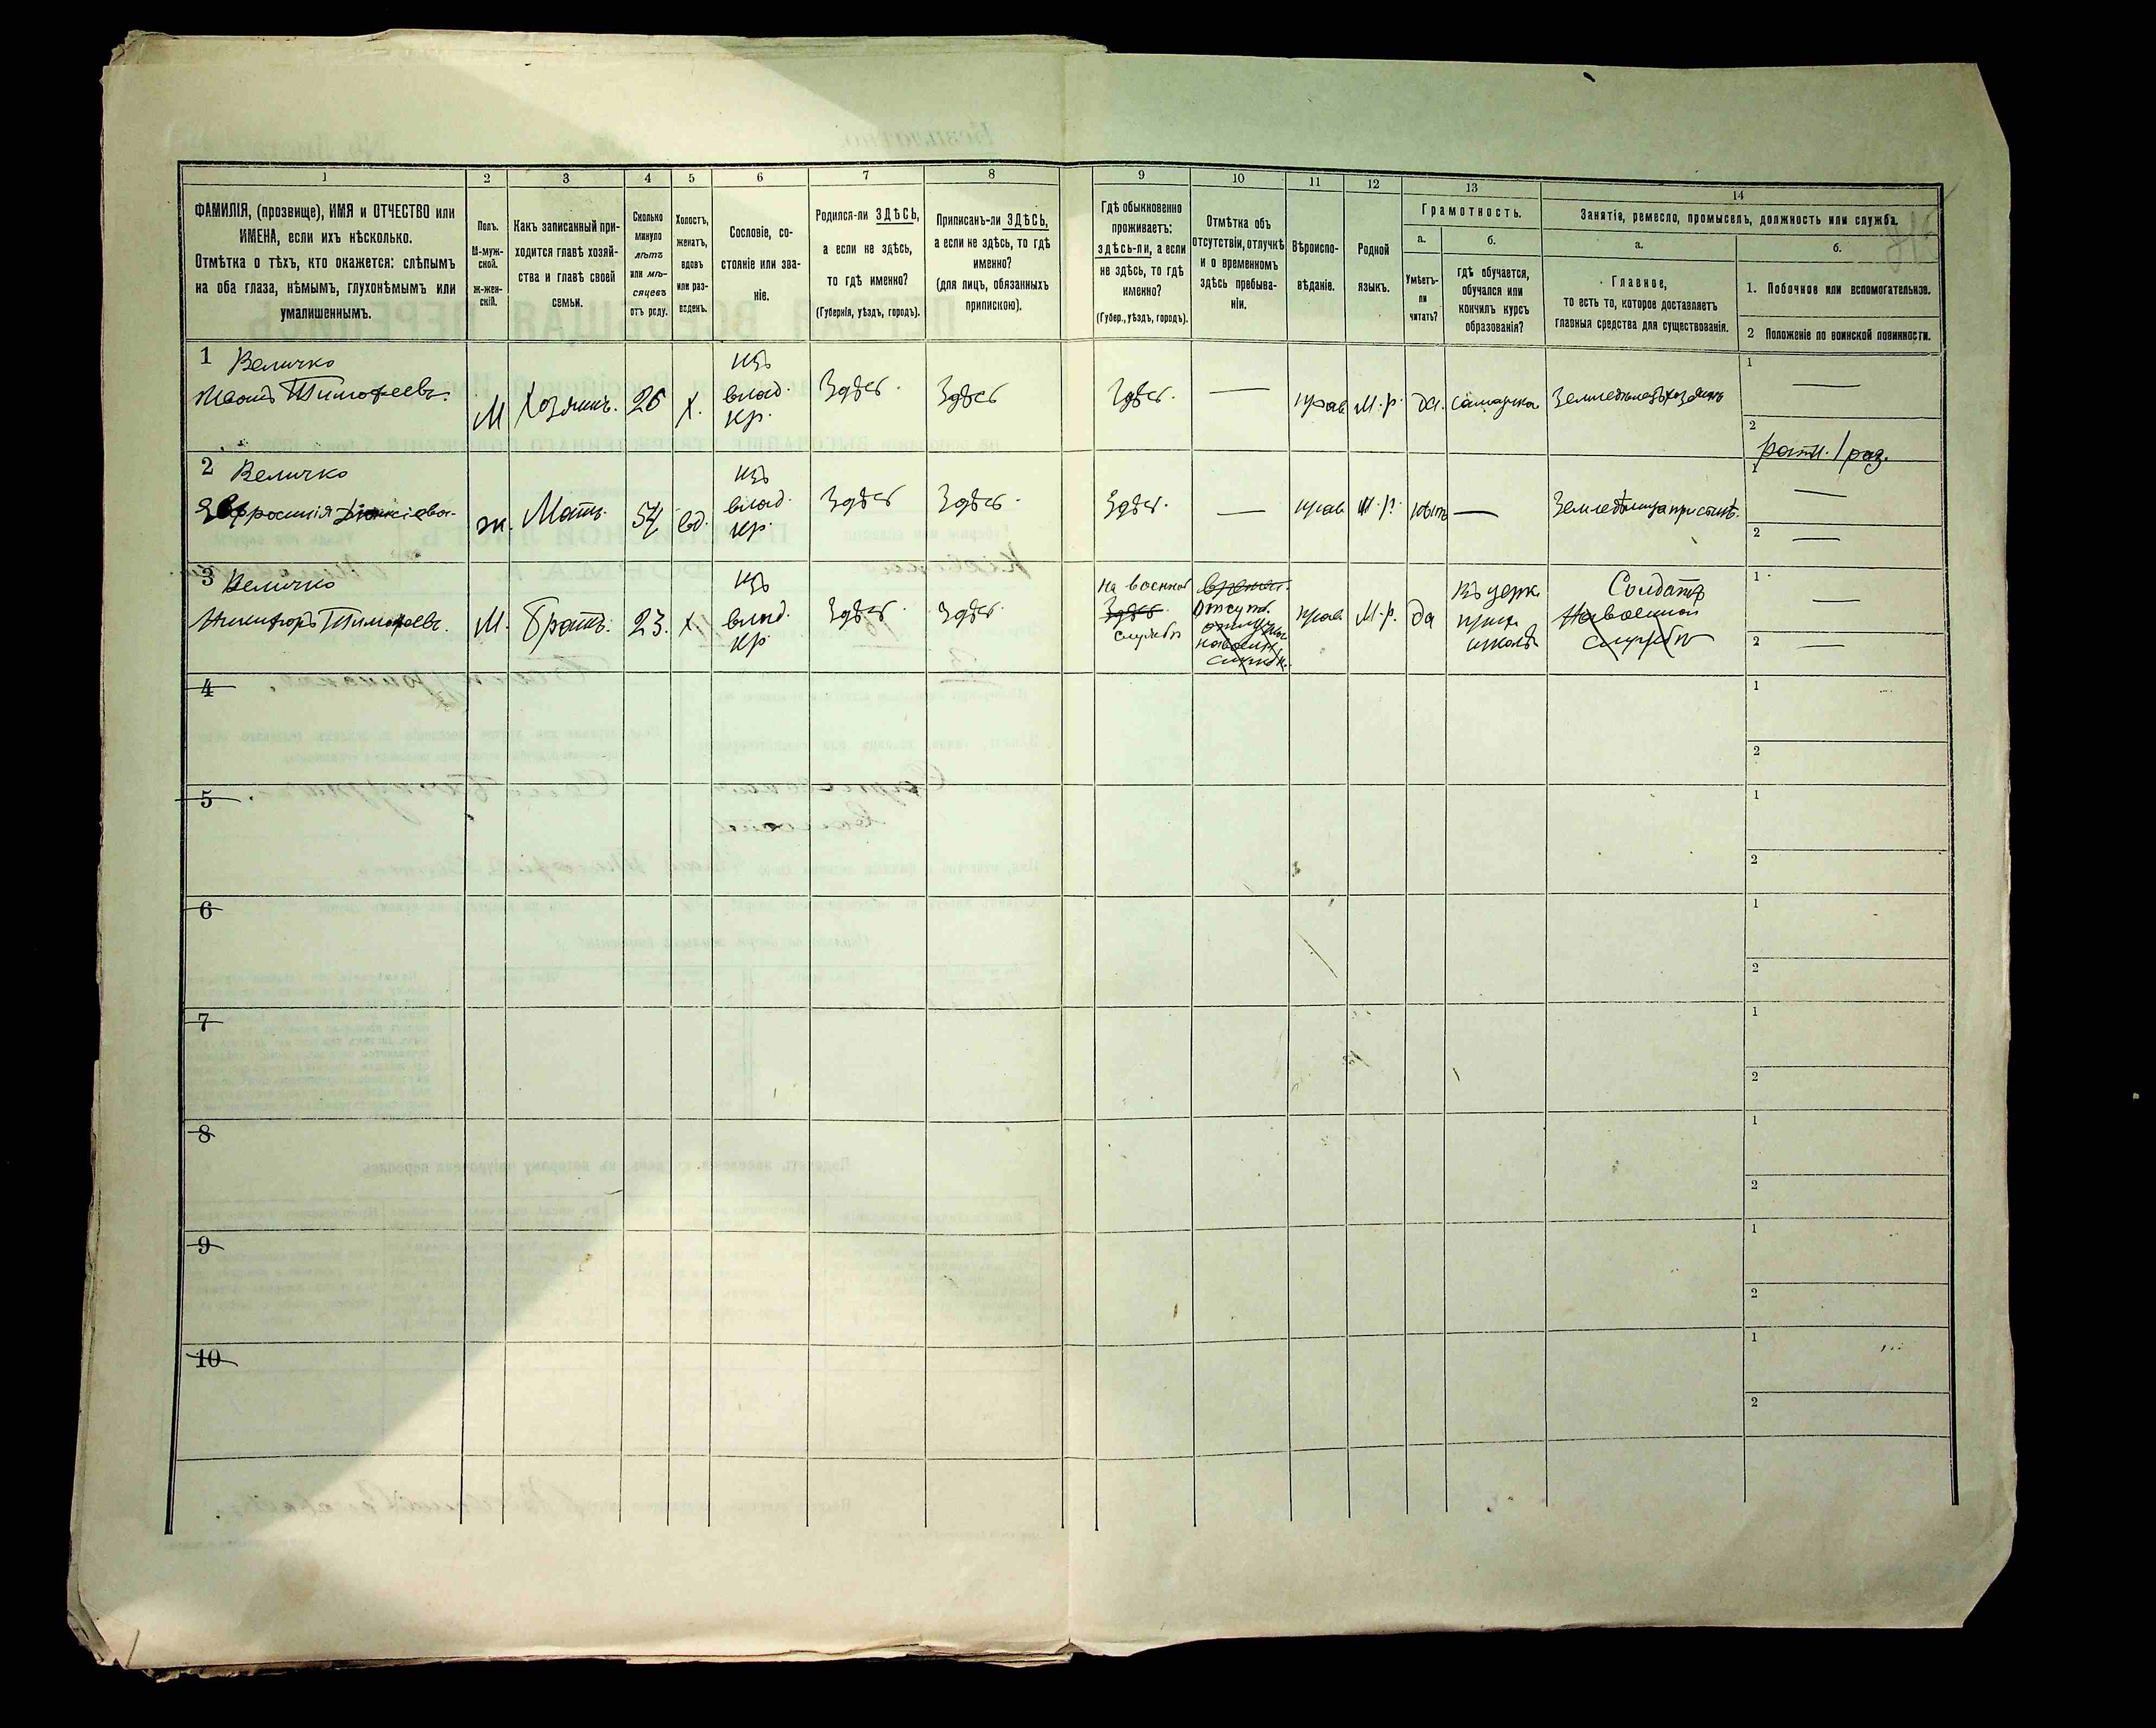 1
2
3
4
5
6
7
8
9
10
11
12
13
14
ФАМИЛІЯ, (прозвище), ИМЯ и ОТЧЕСТВО или
ИМЕНА, если ихъ нѣсколько.
Отмѣтка о тѣхъ, кто окажется: слѣпымъ
на оба глаза, нѣмымъ, глухонѣмымъ или
умалишеннымъ.
Полъ.
М-муж-
ской.
ж-жен-
скій.
Какъ записанный при-
ходится главѣ хозяй-
ства и главѣ своей
семьи.
Сколько
минуло
лѣтъ
или мѣ-
сяцевъ
отъ роду.
Холостъ,
женатъ,
вдовъ
или раз-
веденъ.
Сословіе, со-
стояніе или зва-
ніе.
Родился-ли ЗДѢСЬ,
а если не здѣсь,
то гдѣ именно?
(Губернія, уѣздъ, городъ).
Приписанъ-ли ЗДѢСЬ,
а если не здѣсь, то гдѣ
именно?
(для лицъ, обязанныхъ
припискою).
Гдѣ обыкновенно
проживаетъ:
здѣсь-ли, а если
не здѣсь, то гдѣ
именно?
(Губер., уѣздъ, городъ).
Отмѣтка объ
отсутствіи, отлучкѣ
и о временномъ
здѣсь пребыва-
ніи.
Вѣроиспо-
вѣданіе.
Родной
языкъ.
Грамотность.
а.
Умѣетъ-
ли
читать?
б.
гдѣ обучается,
обучался или
кончилъ курсъ
образованія?
Занятіе, ремесло, промыселъ, должность или служба.
а.
Главное,
то есть то, которое доставляетъ
главныя средства для существованія.
б.
1. Побочное или вспомогательное.
2 Положеніе по воинской повинности.
1 Величко
Иванъ Тимофеевъ.
М
Хозяинъ.
26
х.
изъ
влад.
кр.
Здѣсь.
Здѣсь
Здѣсь.
—
прав
М.р.
да.
самоучка
Земледѣлецъ хозяинъ
1
—
2
ратн. 1 раз.
2 Величко
ж.
Мать.
57
вд.
изъ
влад.
кр.
Здѣсь
Здѣсь.
Здѣсь.
—
прав
М.р.
нѣтъ
—
1
—
2
—
3 Величко
Никифоръ Тимофеевъ.
М.
Братъ.
23.
х.
изъ
влад.
кр.
Здѣсь.
Здѣсь.
на военной
Здѣсь.
службѣ
Отсут.
прав
М.р.
да
въ церк.
прих
школѣ
Солдатъ
На военной
службѣ
1
—
2
—
4
1
2
5
1
2
6
1
2
7
1
2
8
1
2
9
1
2
10
1
2